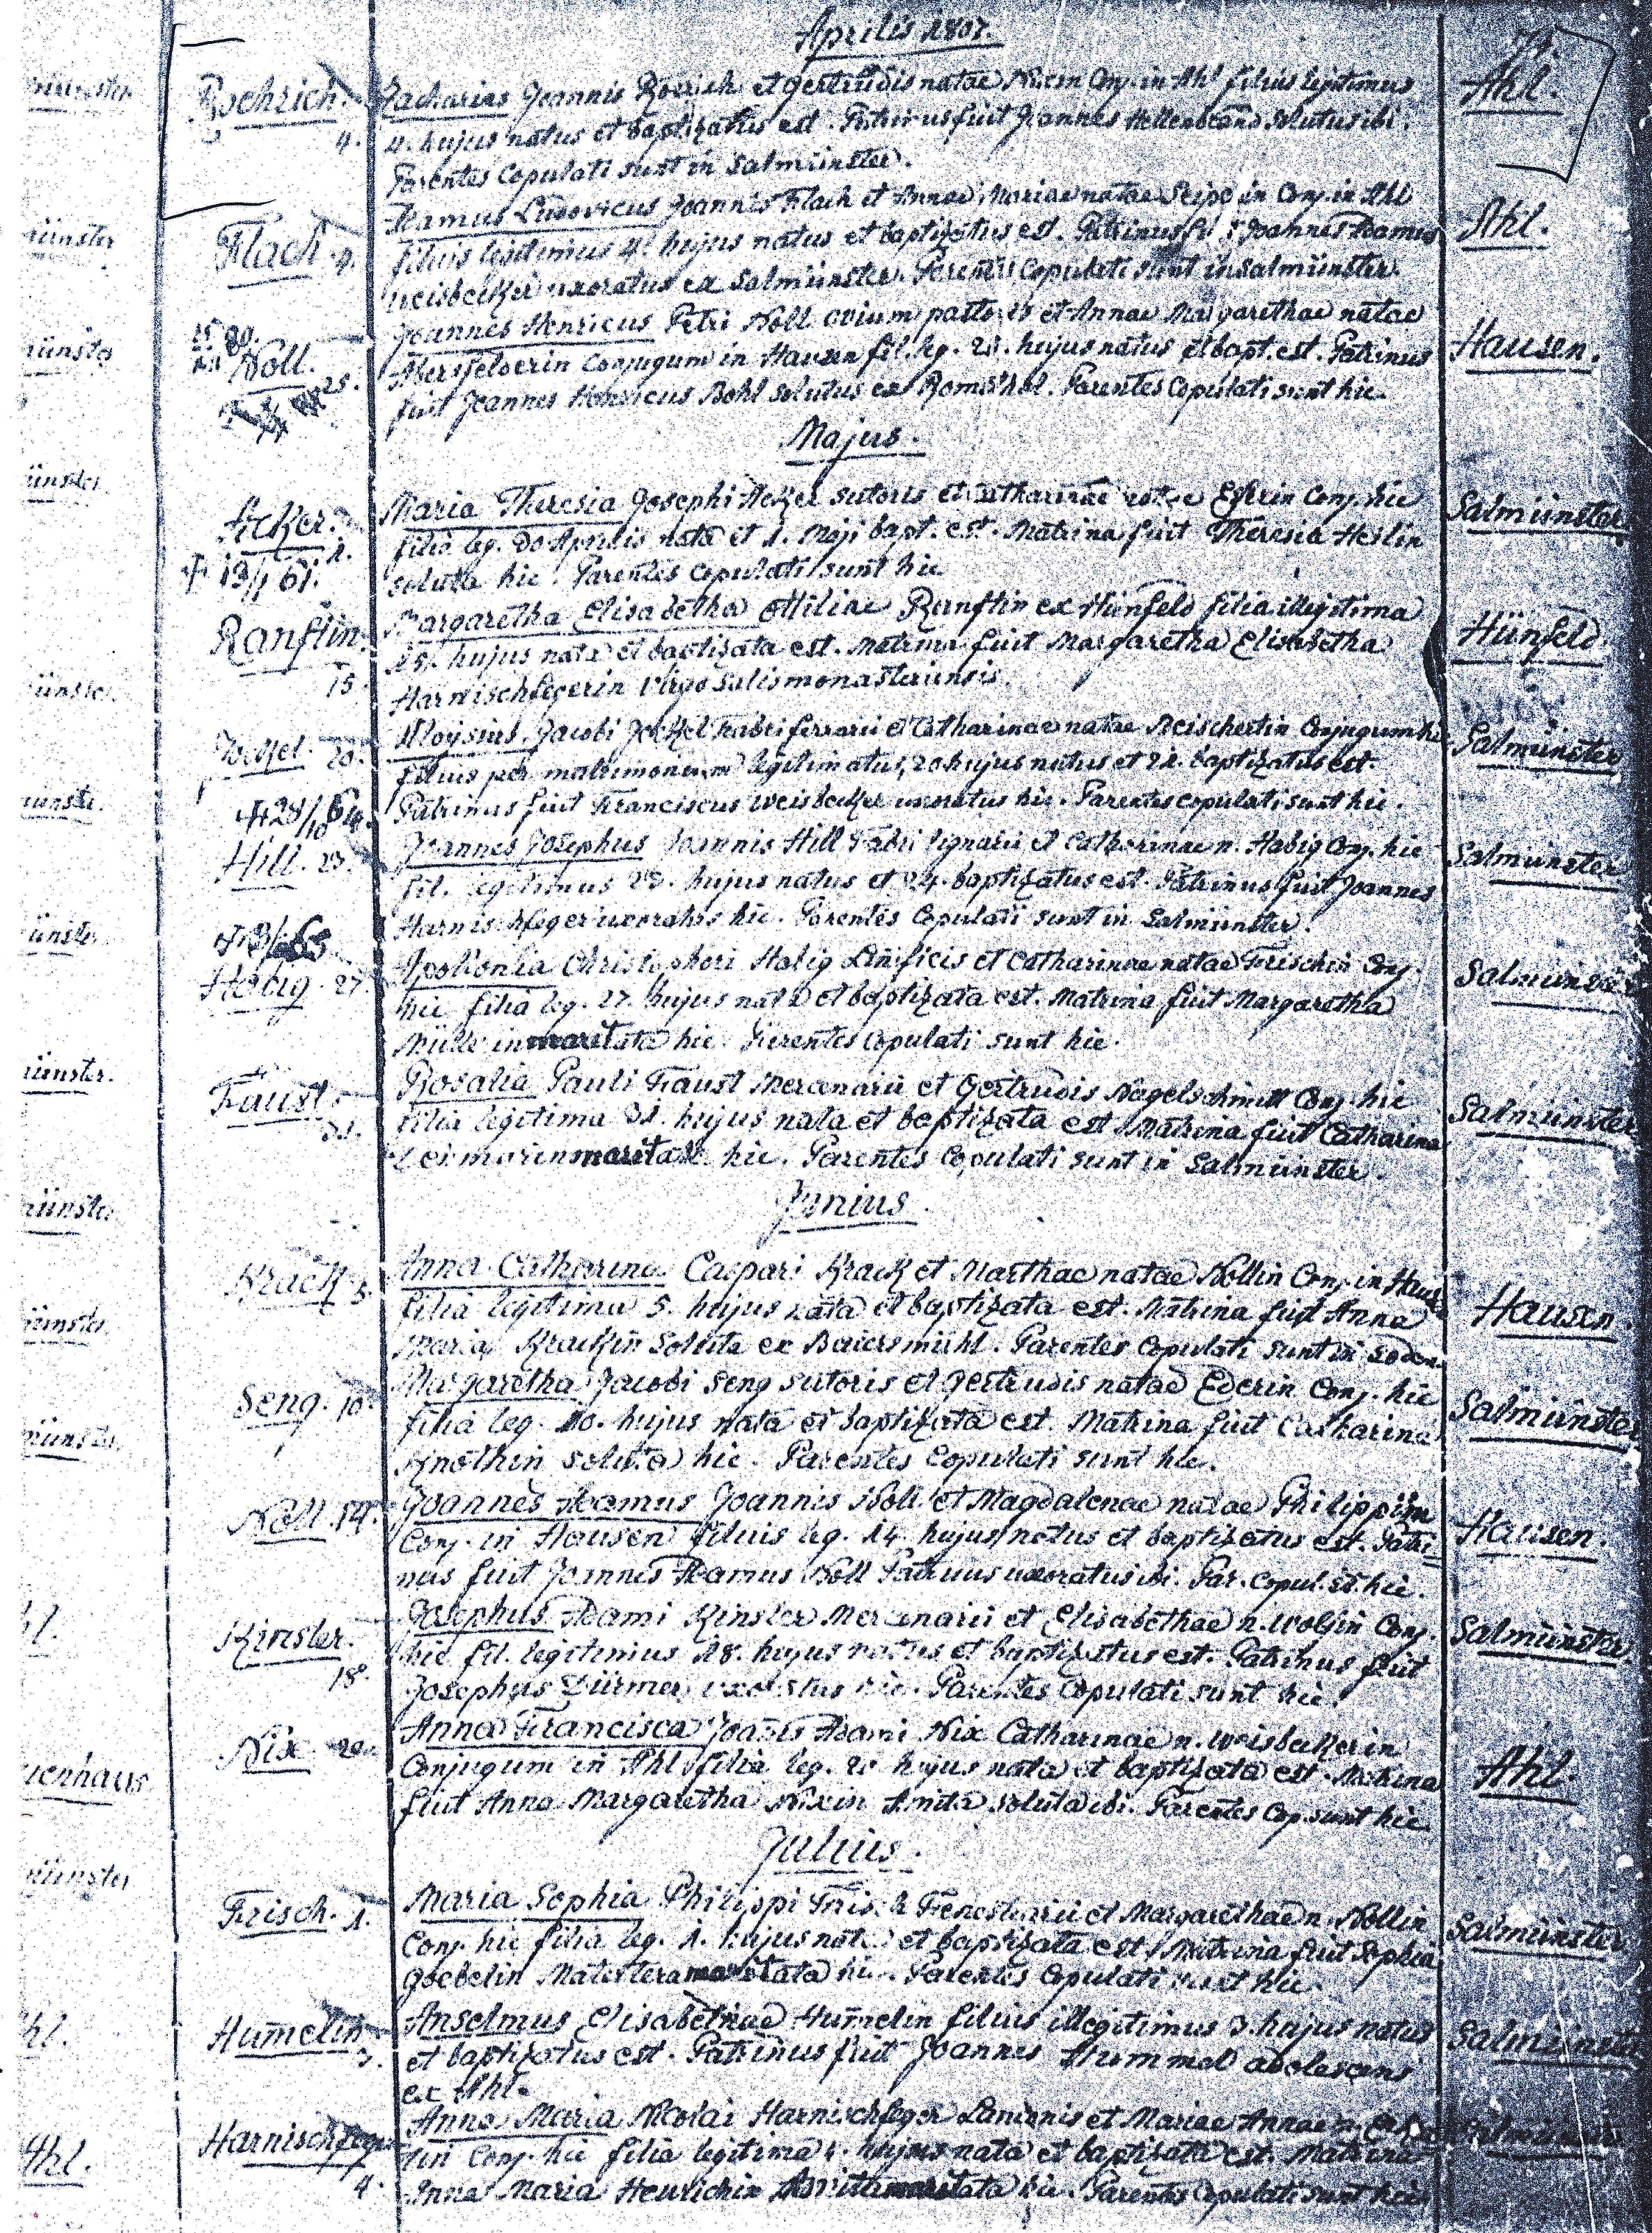 Aprilis 1807.
74.
Roehrich. 4.
Zacharias Joannis Roerich et Gertrudis natae Conj. in Ahl filius legitimus
4. hujus natus et baptizatus est. Patrinus fuit Joannes Hellenbrand solutus ibi.
Parentes Copulati sunt in Salmünster.
Ahl.
Flach. 4.
Adamus Ludovicus Joannis Flach et Annae Mariae natae in Conj. in Ahl
filius legitimus 4. hujus natus et baptizatus est. Patrinus Joannes Adamus
Weisbecker uxoratus ex Salmünster. Parentes Copulati sunt in Salmünster.
Ahl.
Noll. 25.
Joannes Henricus Petri Noll ovium pastoris et Annae Margarethae natae
Conjugum in Hausen fil. leg. hujus natus et bapt. est. Patrinus
fuit Joannes Henricus Bohl solutus ex Parentes Copulati sunt hic.
Hausen.
Majus.
Acker. 1.
Maria Theresia Josephi Acker sutoris et Catharinae natae Conj. hic
filia leg. 30 Aprilis nata et 1. Maji bapt. est. Matrina fuit Theresia Heilin
soluta hic. Parentes copulati sunt hic
Salmünster
Ranftin. 15.
Margaretha Elisabetha Ottiliae Ranftin ex Hünfeld filia illegitima
15. hujus nata et baptizata est. Matrina fuit Margaretha Elisabetha
Harnischfegerin virgo Salismonasteriensis.
Hünfeld.
20.
Aloysius Jacobi fabri ferrarii et Catharinae natae Conjugum hic
filius per matrimonium legitimatus, 20 hujus natus et 21. baptizatus est.
Patrinus fuit Franciscus Weisbecker uxoratus hic. Parentes copulati sunt hic.
Salmünster
Hill. 23.
Joannes Josephus Joannis Hill Fabri lignarii et Catharinae n. Habig Conj. hic
fil. legitimus 23. hujus natus et 24. baptizatus est. Patrinus fuit Joannes
Harnischfeger uxoratus hic. Parentes Copulati sunt in Salmünster.
Salmünster
Habig. 27.
Apollonia Christophori Habig Linificis et Catharinae natae Frischin Conj.
hic filia leg. 27. hujus nata et baptizata est. Matrina fuit Margaretha
Müllerin maritata hic. Parentes Copulati sunt hic.
Salmünster
Faust. 31.
Rosalia Pauli Faust Mercenarii et Gertrudis Nagelschmitt Conj. hic
filia legitima 31. hujus nata et baptizata est. Matrina fuit Catharina
maritata hic. Parentes Copulati sunt in Salmünster.
Salmünster
Junius.
Krack 5.
Anna Catharina Caspari Krack et Marthae natae Nollin Conj. in Hausen
filia legitima 5. hujus nata et baptizata est. Matrina fuit Anna
Maria Krackin soluta ex Baiersmühl. Parentes Copulati sunt in Soden.
Hausen.
Seng. 10.
Margaretha Jacobi Seng sutoris et Gertrudis natae Ederin Conj. hic
filia leg. 10. hujus nata et baptizata est. Matrina fuit Catharina
Knöthin soluta hic. Parentes Copulati sunt hic.
Salmünster
Noll. 14.
Joannes Adamus Joannis Noll et Magdalenae natae Philippin
Conj. in Hausen filius leg. 14. hujus natus et baptizatus est. Patri=
nus fuit Joannes Adamus Noll Patruus uxoratus ibi. Par. copul. st. hic.
Hausen.
Kinsler. 18.
Josephus Adami Kinsler Mercenarii et Elisabethae n. Wolfin Conj.
hic fil. legitimus 18. hujus natus et baptizatus est. Patrinus fuit
Josephus Dürmer uxoratus hic. Parentes Copulati sunt hic.
Salmünster
Nix 20.
Anna Francisca Joanis Adami Nix Catharinae n. Weisbeckerin
Conjugum in Ahl filia leg. 20 hujus nata et baptizata est. Matrina
fuit Anna Margaretha Nixin Amita soluta ibi. Parentes Cop. sunt hic
Ahl.
Julius.
Frisch. 1.
Maria Sophia Philippi Frisch Fenestrarii et Margarethae n. Nollin
Conj. hic filia leg. 1. hujus nata et baptizata est. Matrina fuit Sophia
Goebelin Matertera maritata hic. Parentes Copulati sunt hic.
Salmünster
Humelin 3.
Anselmus Elisabethae Humelin filius illegitimus 3. hujus natus
et baptizatus est. Patrinus fuit Joannes Hummel adolescens
ex Ahl.
Salmünster
Harnischfeger 4.
Anna Maria Nicolai Harnischfeger Lanionis et Mariae Annae n.
Conj. hic filia legitima 4. hujus nata et baptizata est. Matrina
Anna Maria Heurichin Amita maritata hic. Parentes Copulati sunt hic
Salmünster